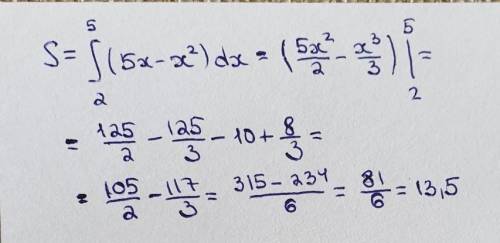 S = ∫₂⁵ (5x - x²) dx = (5x²/2 - x³/3) |₂⁵ =
= 125/2 - 125/3 - 10 + 8/3 =
= 105/2 - 117/3 = (315 - 234)/6 = 81/6 = 13,5